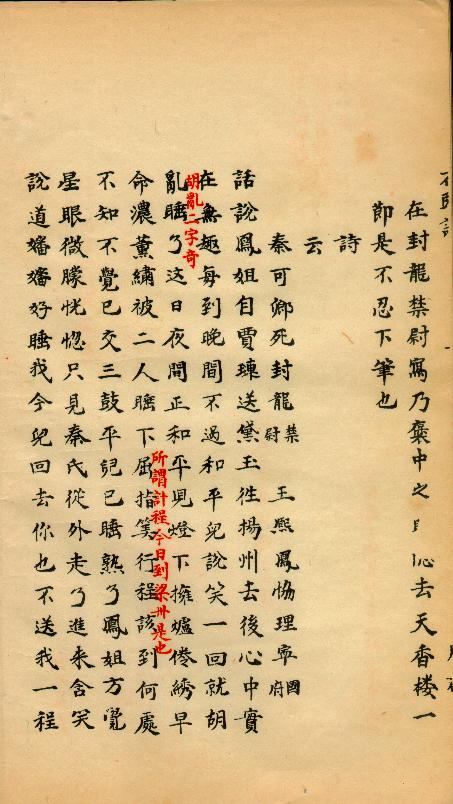 在封龍禁尉寫乃褒中之去天香楼一
節是不忍下筆也
詩
云
秦可卿死封龍禁尉 王熙鳳協理寧國府
話說鳳姐自賈璉送黛玉徃楊州去後心中實
在無趣每到晚間不過和平兒說笑一回就胡
胡亂二字奇
亂睡了这日夜間正和平兒燈下擁爐倦綉早
所謂計程今日到梁州是也
命濃薰繡被二人睡下屈指算行程該到何處
不知不覺已交三鼓平兒已睡熟了鳳姐方覺
星眼微朦恍惚只見秦氏從外走了進來含笑
說道嬸嬸好睡我今兒回去你也不送我一程